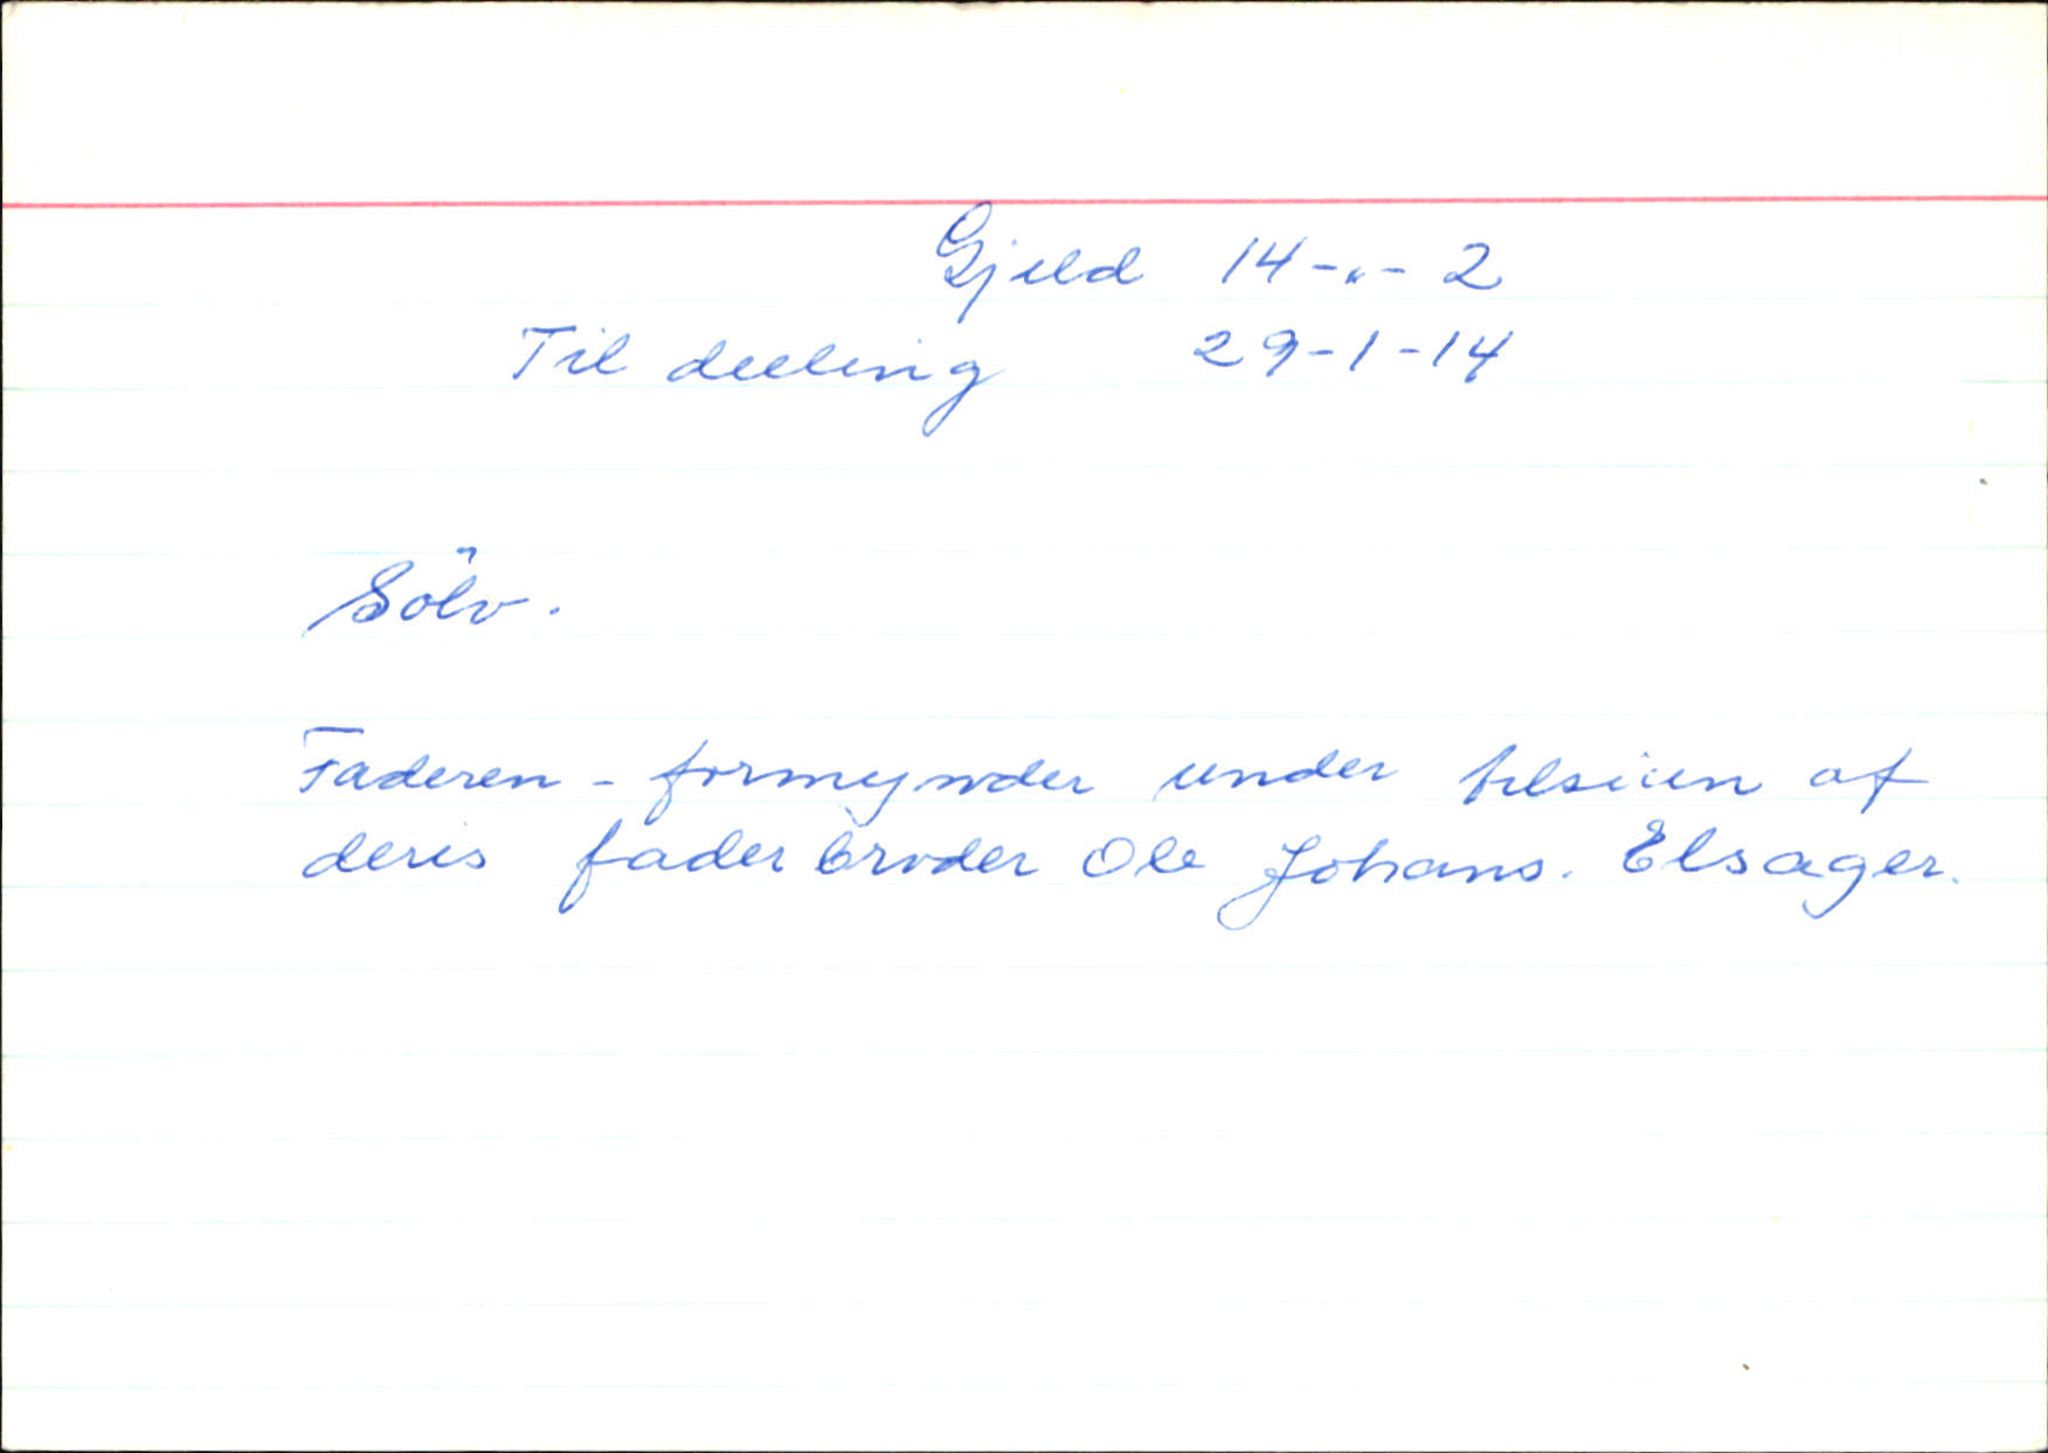 Gjeld 14-"-2
Til deeling 29-1-14
Sölv.
Faderen - formynder under tilsiun af
deris faderbroder Ole Johans. Elsager.